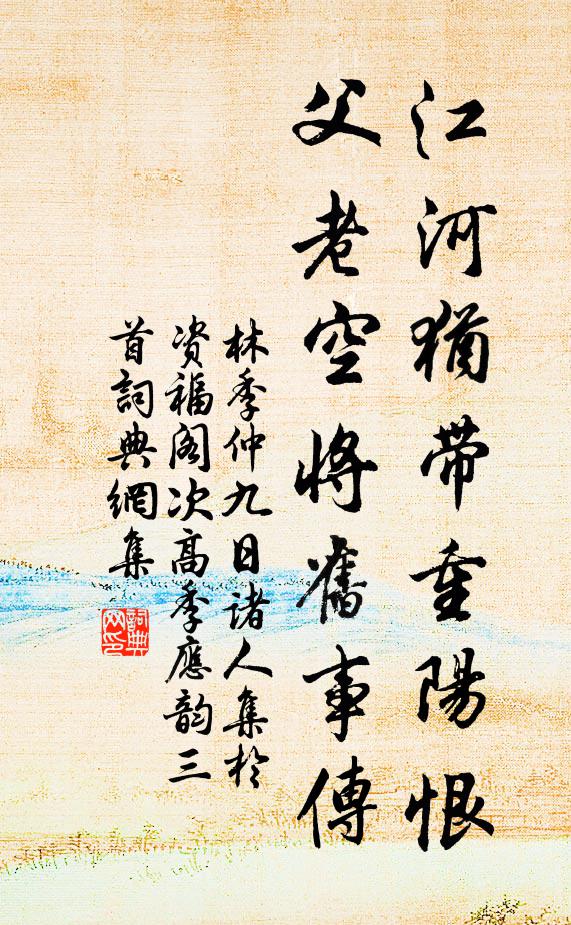 江河猶帶重陽恨
父老空將舊事傳
林季仲九日諸人集於
资福阁次高季應韵三
首詞典網集
詞典
网印